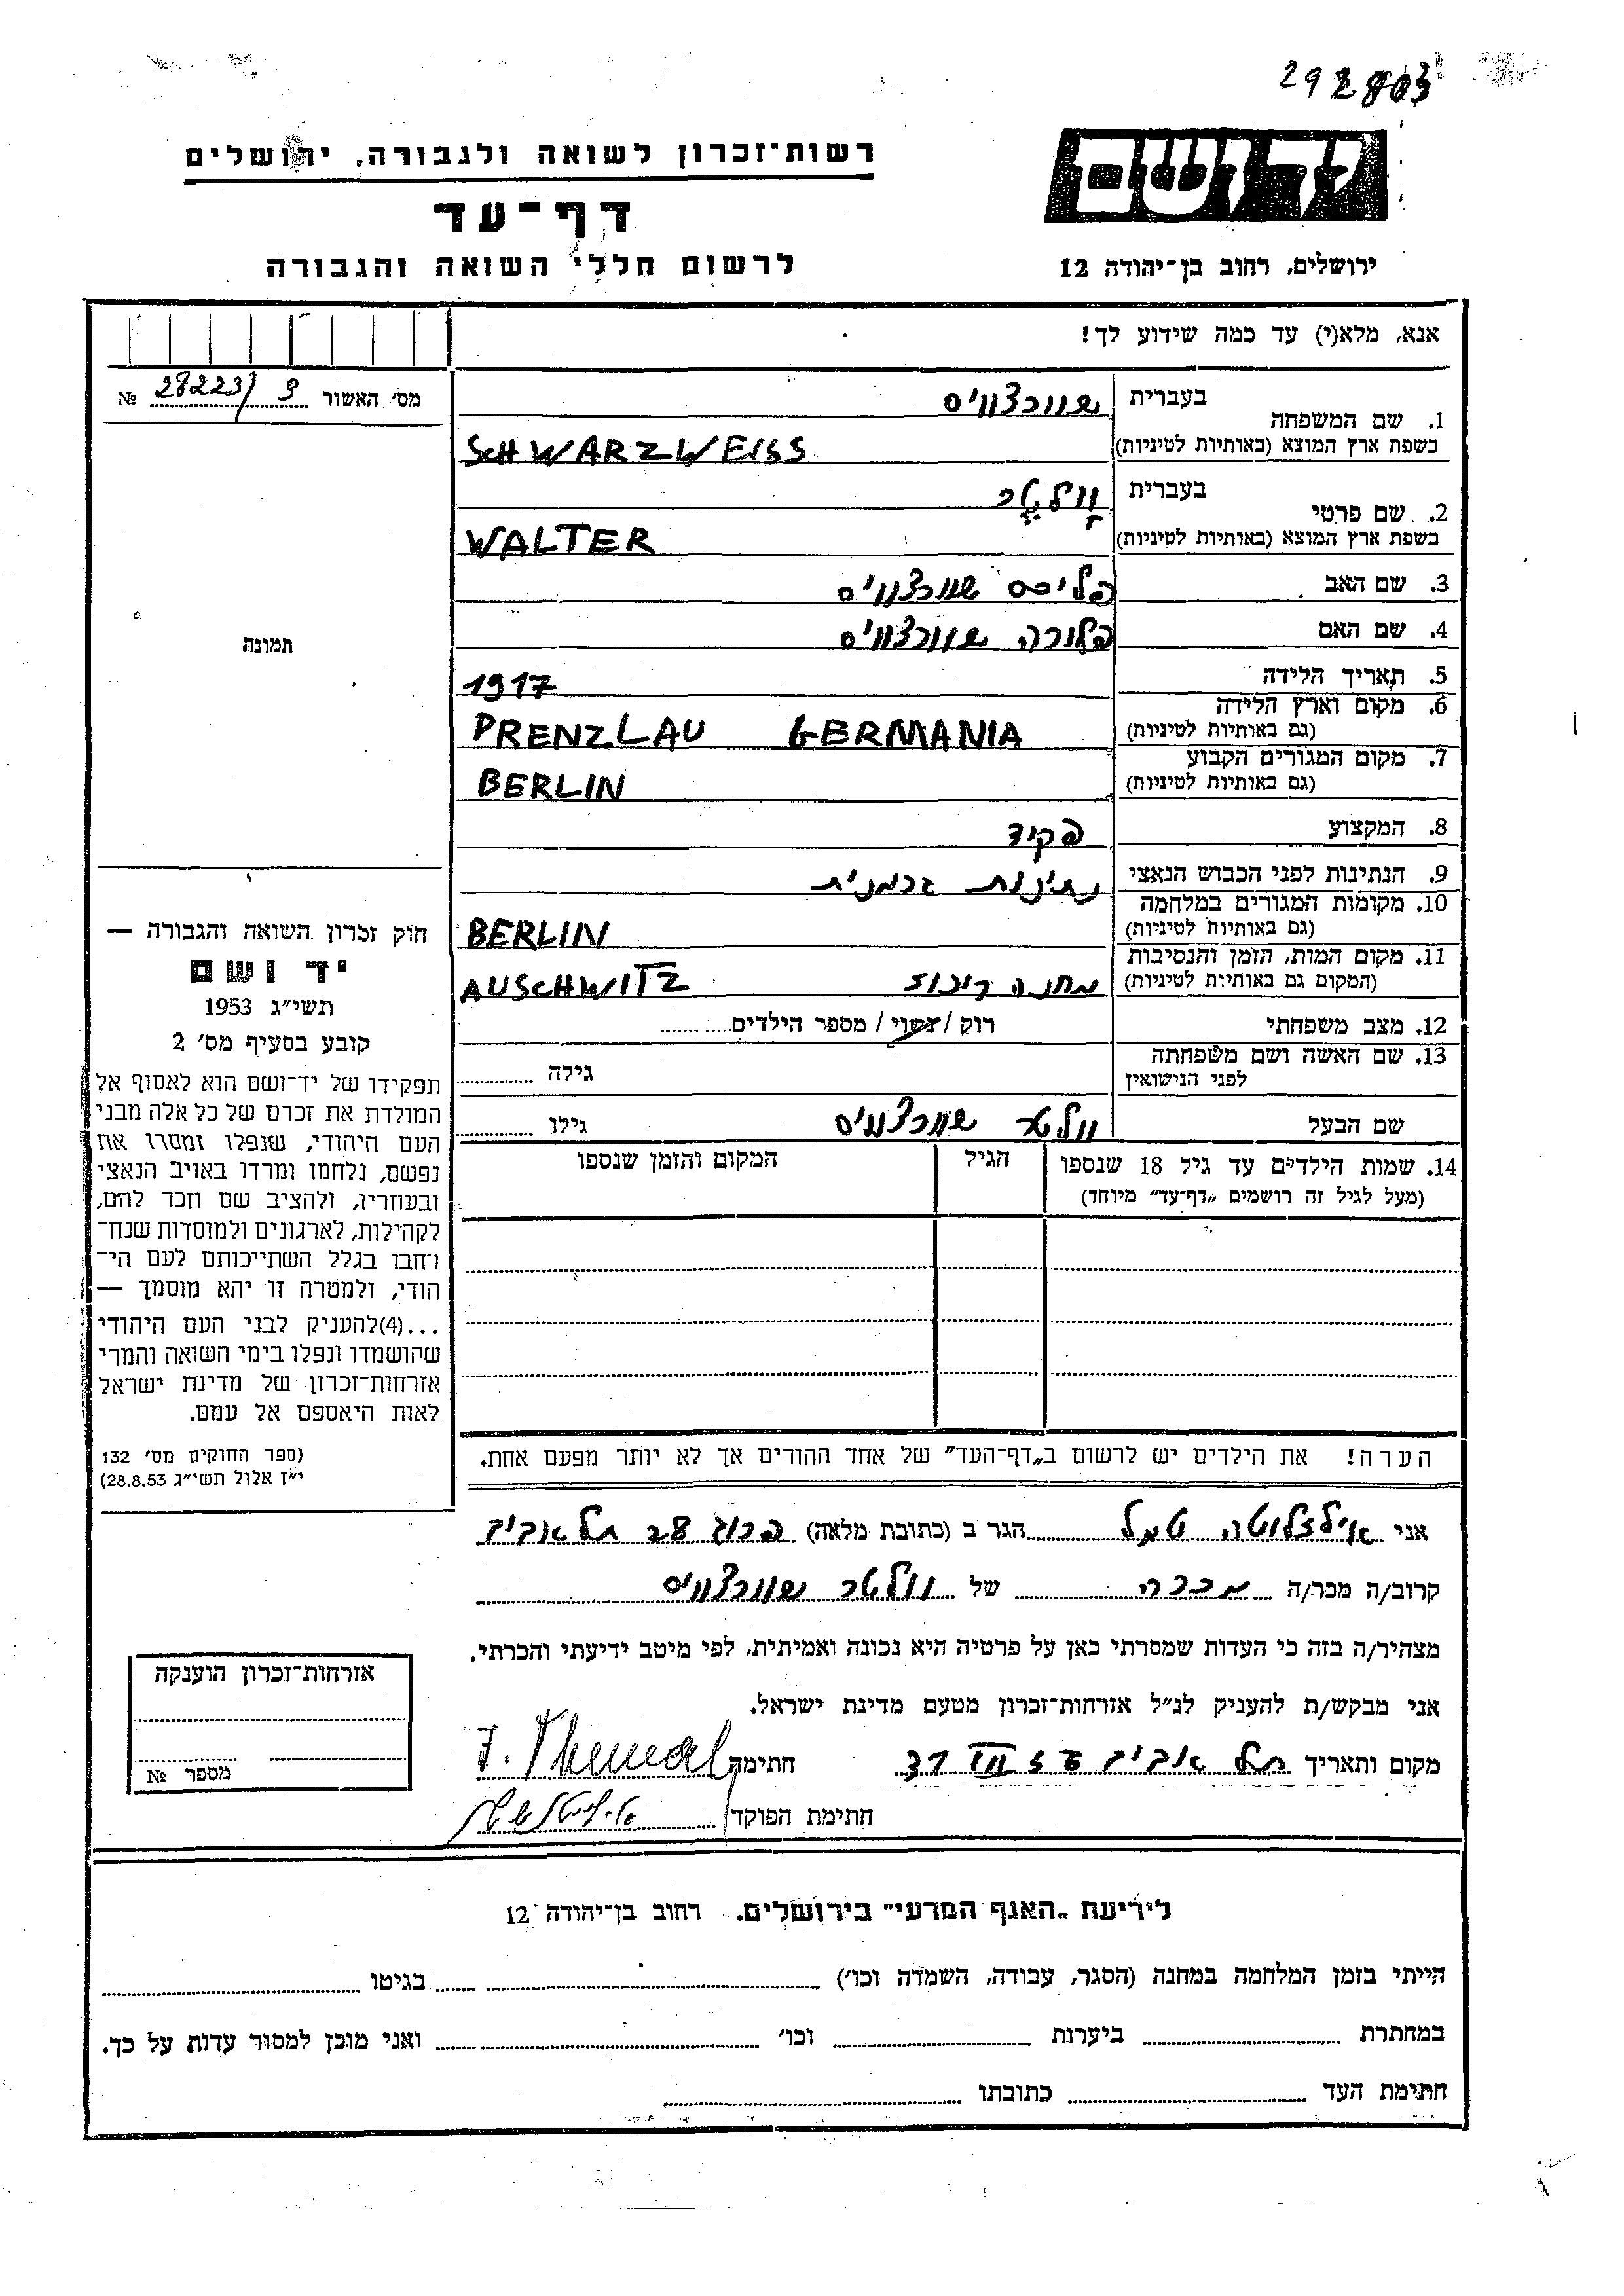 292803
רשות־זכרון לשואה ולגבורה, ירושלים
ידושם
דף־עד
ירושלים, רחוב בן־יהודה 12
לרשום חללי השואה והגבורה
אנא, מלא(י) עד כמה שידוע לך!
מס׳ האשור 28223/3 №
1. שם המשפחה
בעברית שוורצווייס
בשפת ארץ המוצא (באותיות לטיניות) SCHWARZWEISS
2. שם פרטי
בעברית וולטר
בשפת ארץ המוצא (באותיות לטיניות) WALTER
3. שם האב פליכס שוורצווייס
4. שם האם פלורה שוורצווייס
תמונה
5. תאריך הלידה 1917
6. מקום וארץ הלידה
(גם באותיות לטיניות) PRENZLAU GERMANIA
7. מקום המגורים הקבוע
(גם באותיות לטיניות) BERLIN
8. המקצוע פקיד
9. הנתינות לפני הכבוש הנאצי נתינות גרמנית
10. מקומות המגורים במלחמה
(גם באותיות לטיניות) BERLIN
11. מקום המות, הזמן והנסיבות
(המקום גם באותיות לטיניות) מחנה ריכוז AUSCHWITZ
12. מצב משפחתי רוק / נשוי / מספר הילדים
13. שם האשה ושם משפחתה
לפני הנישואין גילה
שם הבעל וולטר שוורצווייס גילו
14. שמות הילדים עד גיל 18 שנספו הגיל המקום והזמן שנספו
(מעל לגיל זה רושמים „דף־עד” מיוחד)
חוק זכרון השואה והגבורה —
יד ושם
תשי״ג 1953
קובע בסעיף מס׳ 2
תפקידו של יד־ושם הוא לאסוף אל
המולדת את זכרם של כל אלה מבני
העם היהודי, שנפלו ומסרו את
נפשם, נלחמו ומרדו באויב הנאצי
ובעוזריו, ולהציב שם וזכר להם,
לקהילות, לארגונים ולמוסדות שנח־
רחבו בגלל השתייכותם לעם הי־
הודי, ולמטרה זו יהא מוסמך —
...(4)להעניק לבני העם היהודי
שהושמדו ונפלו בימי השואה והמרי
אזרחות־זכרון של מדינת ישראל
לאות היאספם אל עמם.
(ספר החוקים מס׳ 132
י״ז אלול תשי״ג 28.8.53)
הערה! את הילדים יש לרשום ב„דף־העד” של אחד ההורים אך לא יותר מפעם אחת.
אני אילזלוטה טמל הגר ב (כתובת מלאה) פרוג 28 תל אביב
קרוב/ה מכר/ה מכרה של וולטר שוורצווייס
מצהיר/ה בזה כי העדות שמסרתי כאן על פרטיה היא נכונה ואמיתית, לפי מיטב ידיעתי והכרתי.
אני מבקש/ת להעניק לנ״ל אזרחות־זכרון מטעם מדינת ישראל.
מקום ותאריך תל אביב חתימה
חתימת הפוקד
אזרחות־זכרון הוענקה
מספר №
לידיעת „האגף המדעי” בירושלים. רחוב בן־יהודה 12
הייתי בזמן המלחמה במחנה (הסגר, עבודה, השמדה וכו׳) בגיטו
במחתרת ביערות וכו׳ ואני מוכן למסור עדות על כך.
חתימת העד כתובתו